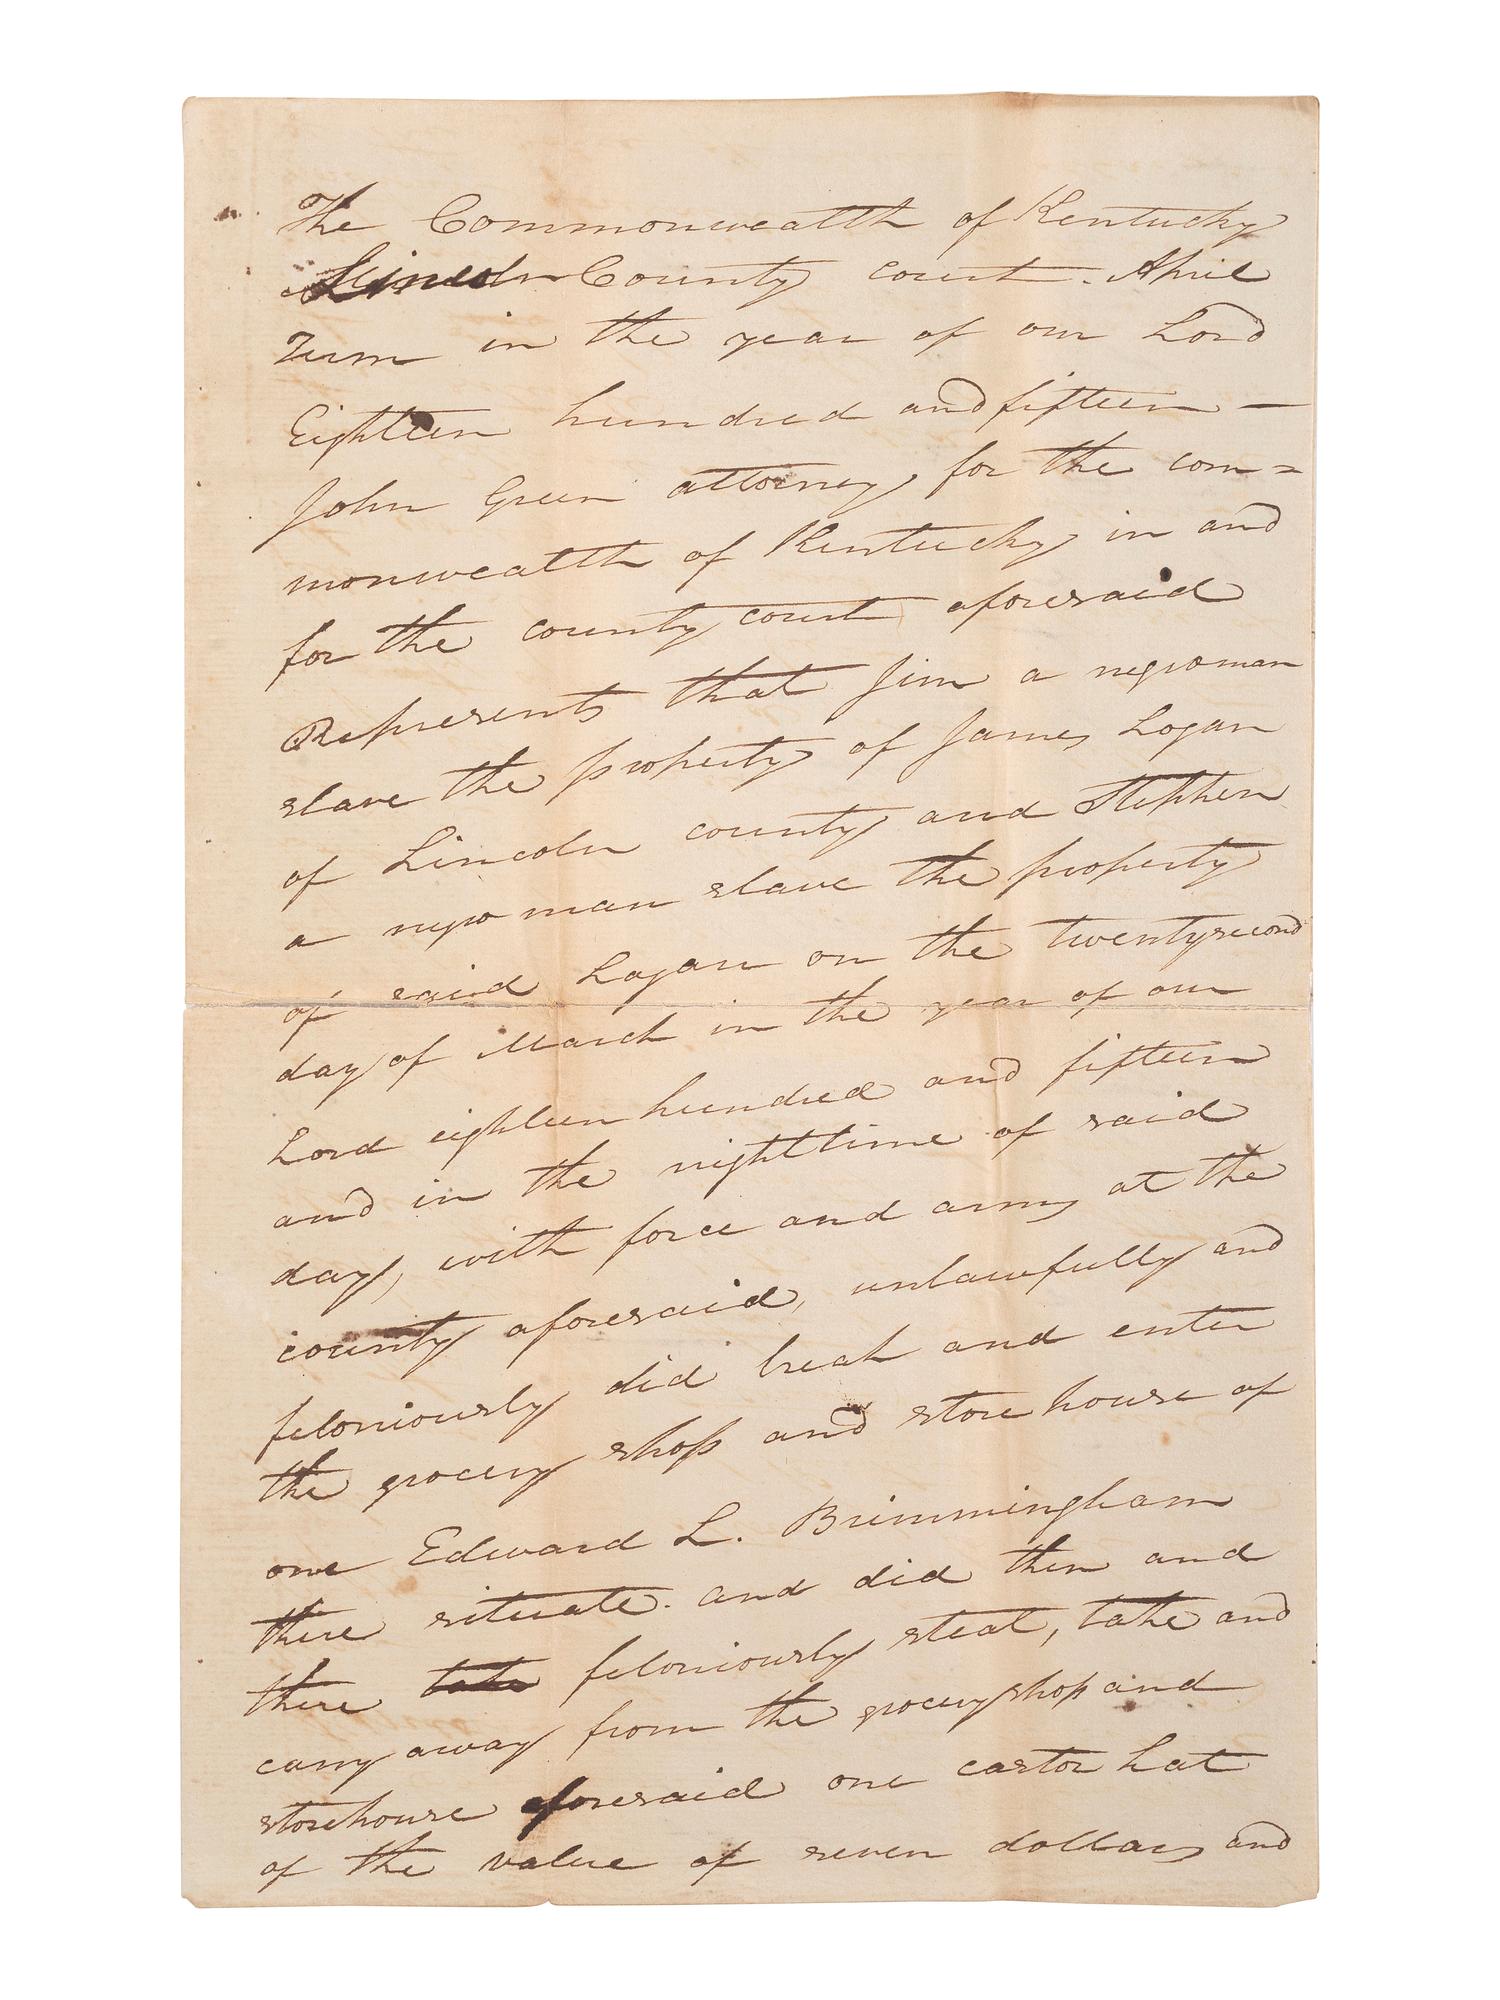 The Commonwealth of Kentucky
Lincoln County court. April
Term in the year of our Lord
Eighteen hundred and fifteen —
John Green attorney for the com=
monwealth of Kentucky in and
for the county court aforesaid
Represents that Jim a negro man
slave the property of James Logan
of Lincoln county and Stephen
a negro man slave the property
of said Logan on the twenty second
day of March in the year of our
Lord eighteen hundred and fifteen
and in the nighttime of said
day, with force and arms at the
county aforesaid, unlawfully and
feloniously did break and enter
the grocery shop and store house of
one Edward L. Brimmingham
there situate. and did then and
there take feloniously steal, take and
carry away from the grocery shop and
storehouse aforesaid one castor hat
of the value of seven dollars and